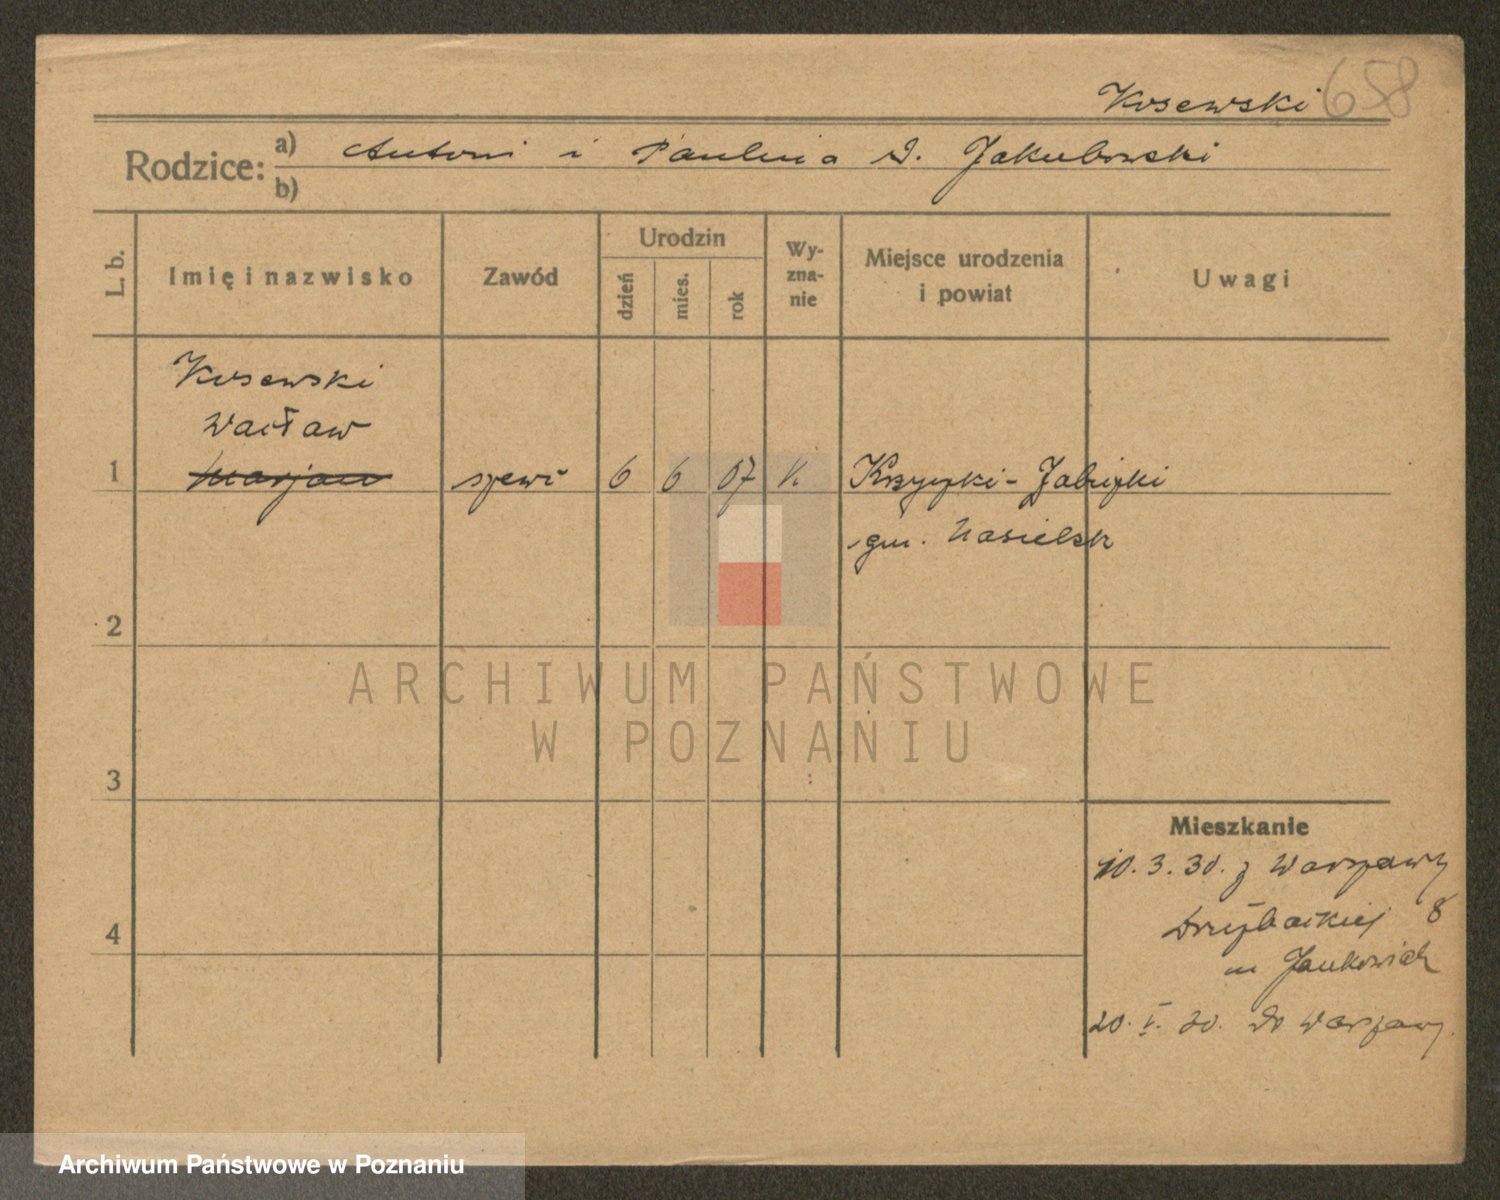 Kosewski 658
Rodzice: a) Antoni i Paulina d. Jakubowski
b)
L. b.
Imię i nazwisko
Zawód
Urodzin
dzień
mies.
rok
Wy-
zna-
nie
Miejsce urodzenia
i powiat
Uwagi
Kosewski
Wacław
1 Marjan szewc 6 6 07 k.
gm. Nasielsk
2
ARCHIWUM PAŃSTWOWE
W POZNANIU
3
Mieszkanie
10. 3. 30. z Warszawy
8
4
u Jankowiak
20. V. 30. do Warszawy.
Archiwum Państwowe w Poznaniu